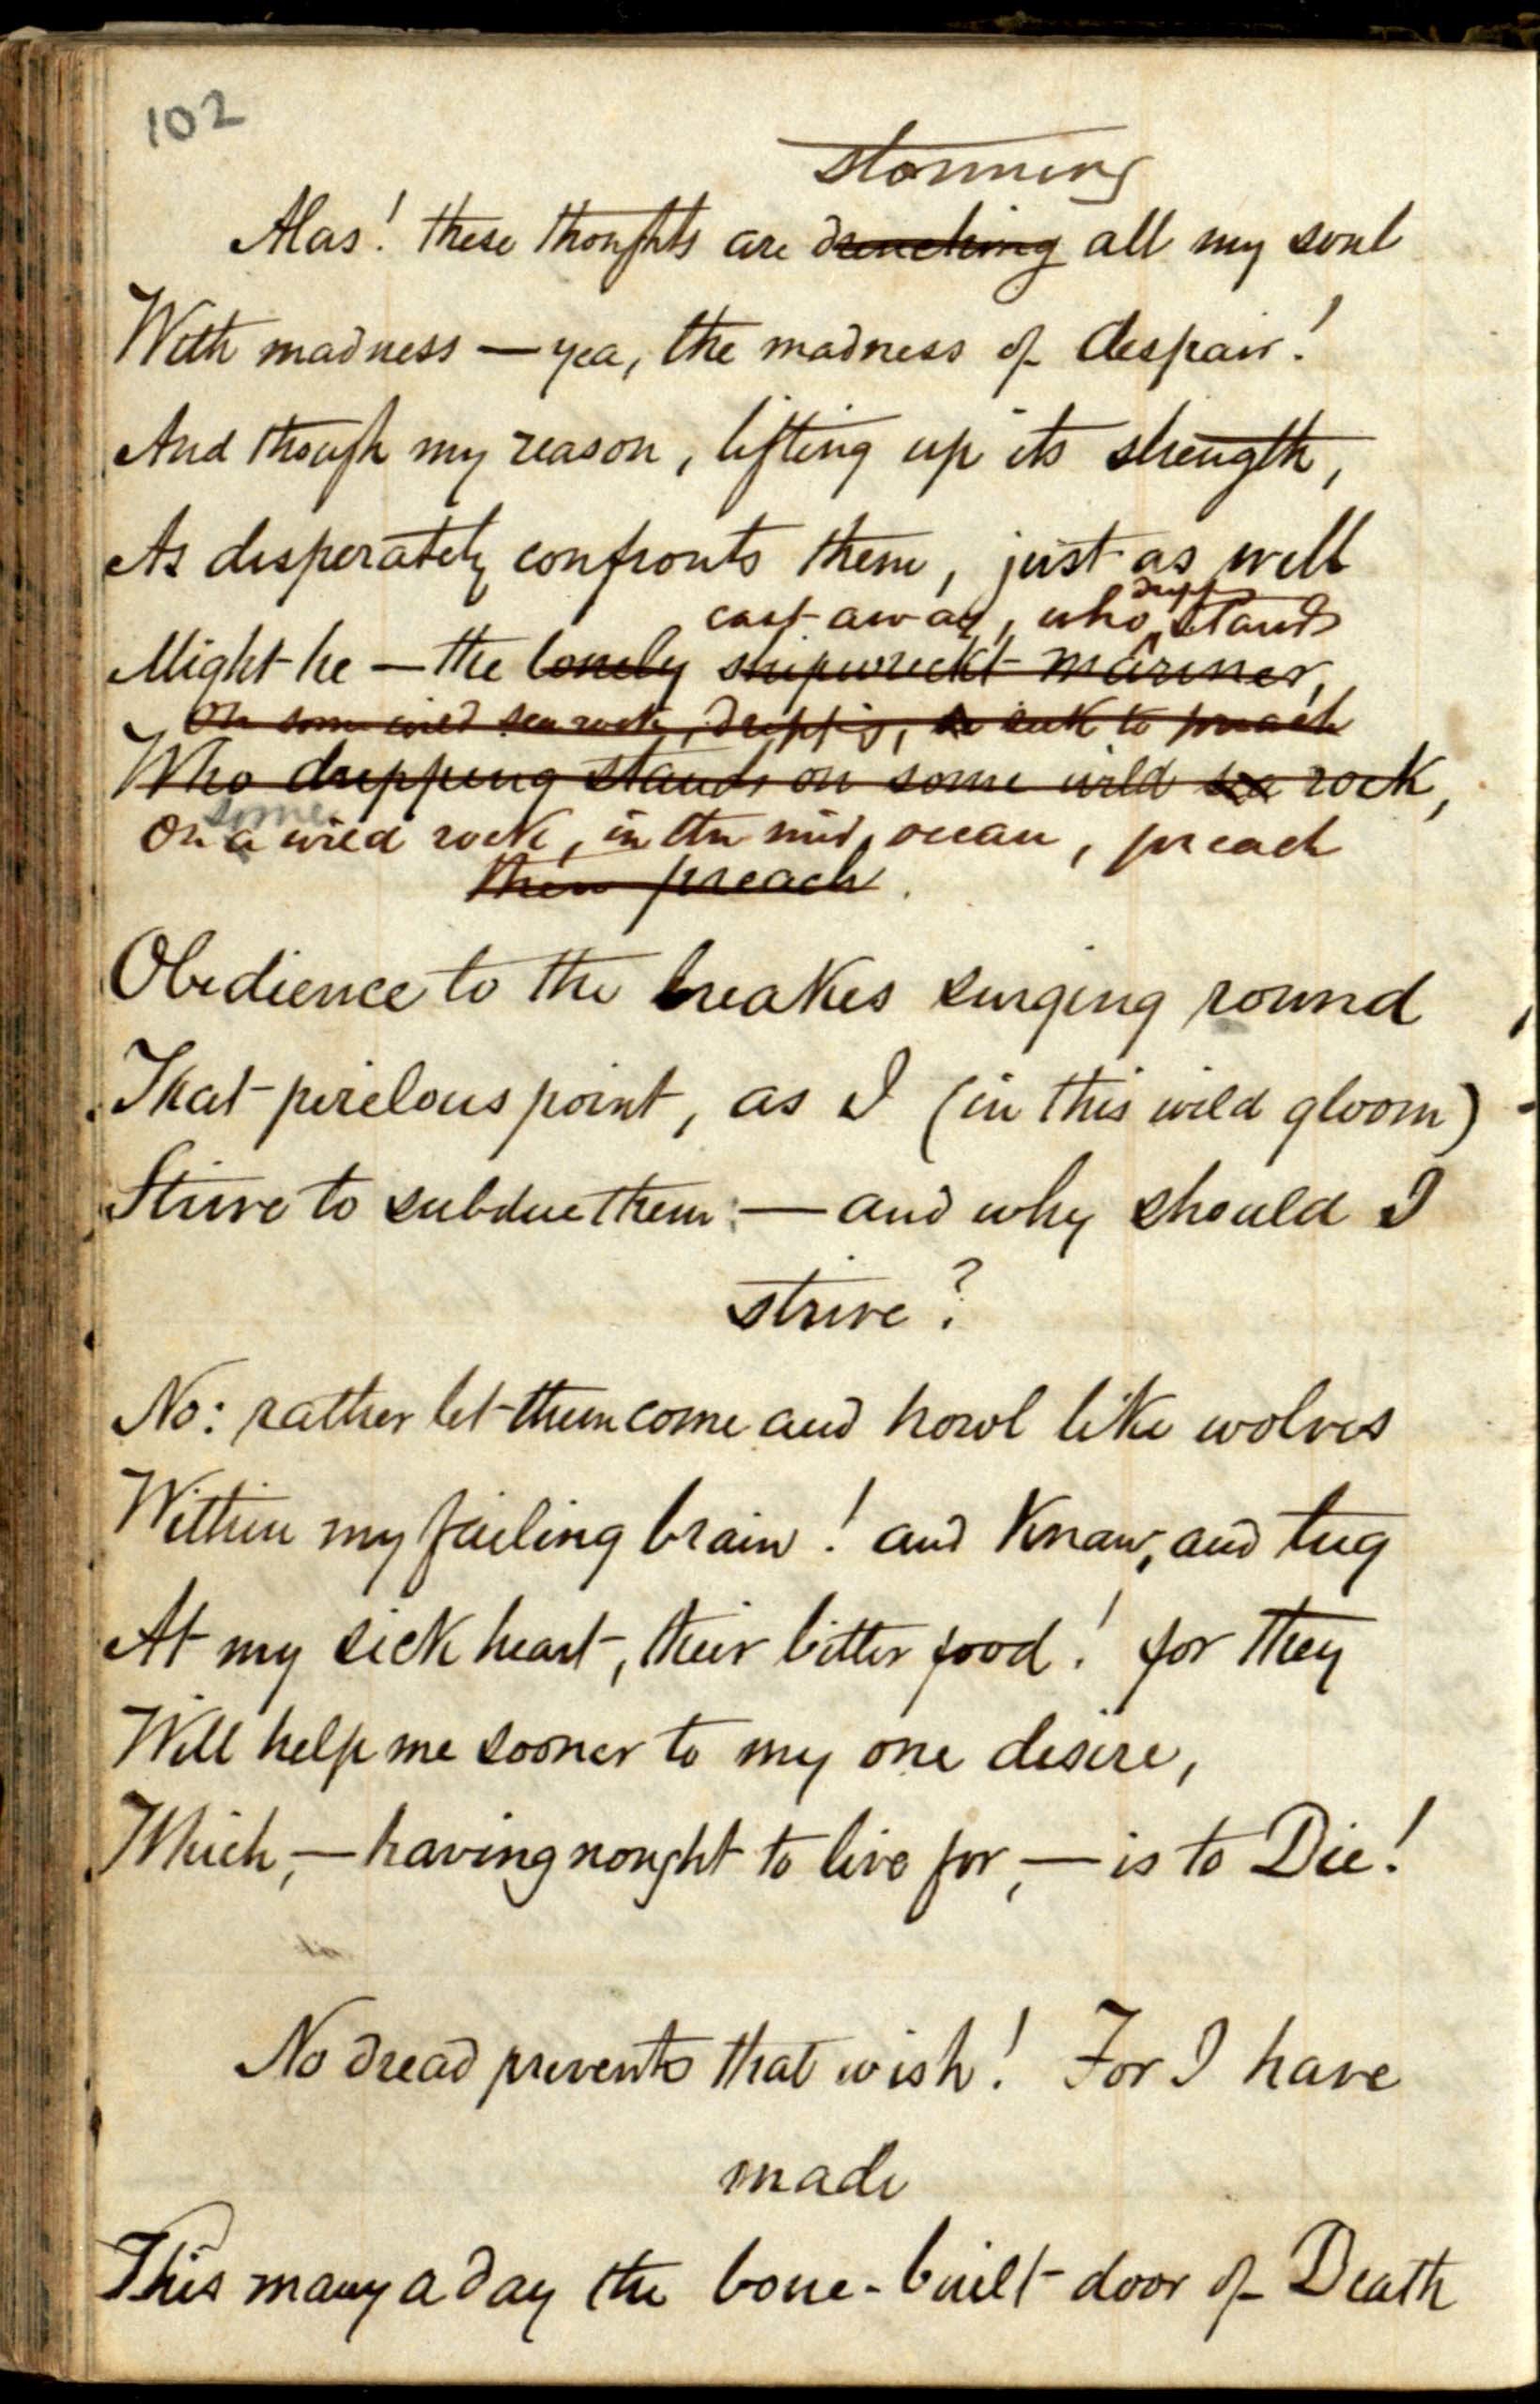 102
storming
Alas! these thoughts are drenching all my soul
With madness — yea, the madness of despair!
And though my reason, lifting up its strength,
As desperately confronts them, just as well
dripp
cast away, who stands
Might he — the lonely shipwreckt mariner,
On some wild sea rock, dripping, seek to preach
Who dripping stands on some wild sea rock,
some
On a wild rock, in the mid ocean, preach
then preach.
Obedience to the breakes surging round
That perilous point, as I (in this wild gloom)
Strive to subdue them: — and why should I
strive?
No: rather let them come and howl like wolves
Within my failing brain! and Knaw, and tug
At my sick heart, their bitter food! for they
Will help me sooner to my one desire,
Which, — having nought to live for, — is to Die!
No dread prevents that wish! For I have
made
This many a day the bone-built door of Death